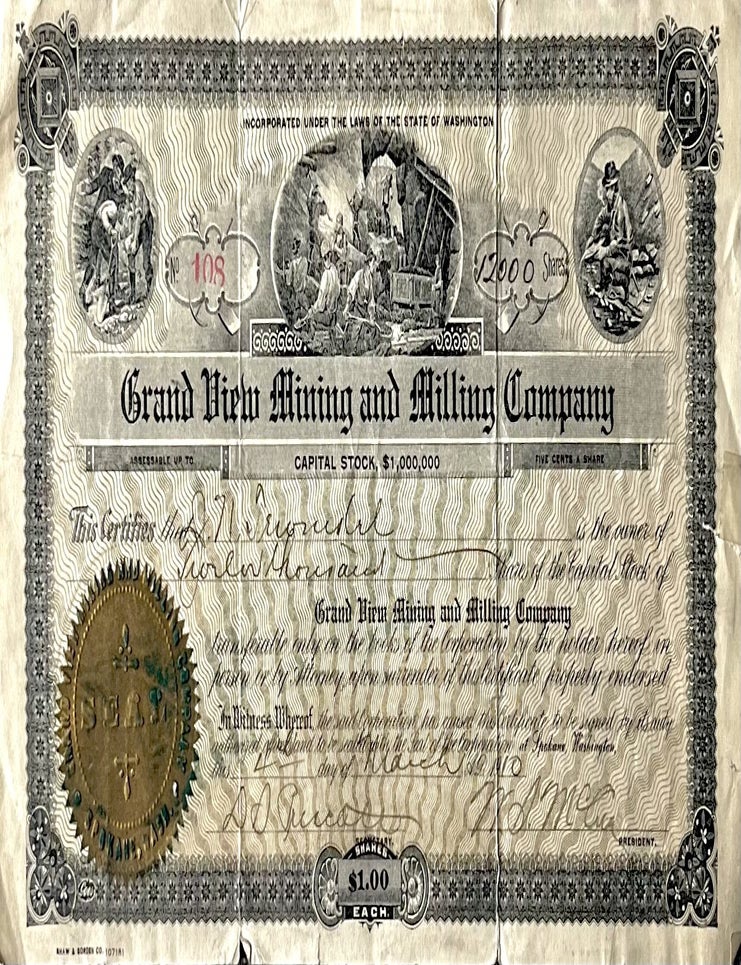 INCORPORATED UNDER THE LAWS OF THE STATE OF WASHINGTON
No 108
12000 Shares
Grand View Mining and Milling Company
ASSESSABLE UP TO
CAPITAL STOCK, $1,000,000
FIVE CENTS A SHARE
This Certifies that J. N. is the owner of
Twelve thousand Shares of the Capital Stock of
Grand View Mining and Milling Company
transferable only on the books of the Corporation by the holder hereof in
person or by Attorney upon surrender of this Certificate properly endorsed
In Witness Whereof, the said Corporation has caused this Certificate to be signed by its duly
authorized officers and to be sealed with the seal of the Corporation at Spokane, Washington,
this 4 day of March 1910
SEAL
SPOKANE, WASH.
SECRETARY.
PRESIDENT.
SHARES
$1.00
EACH.
SHAW & BORDEN CO. 107181